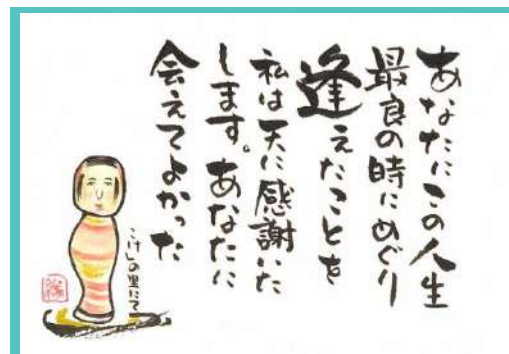 あなたにこの人生
最良の時にめぐり
逢えたことを
私は天に感謝いた
します。あなたに
会えてよかった
こけしの里にて